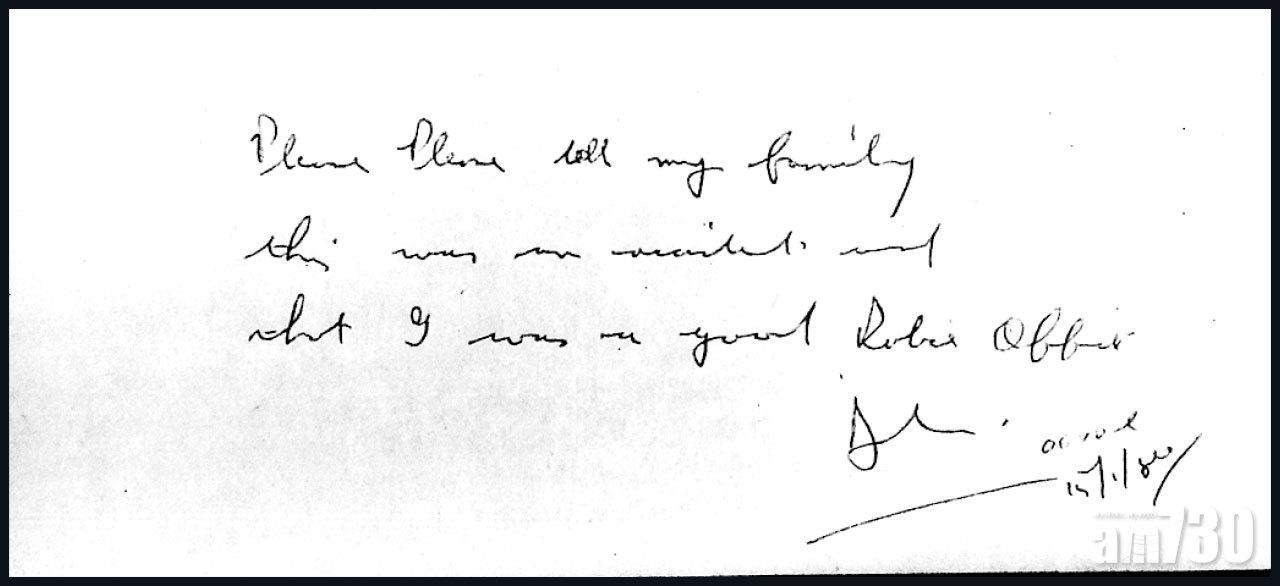 Please Please tell my family
this was an accident. and
that I was a good Police Officer
15/1/80
am730